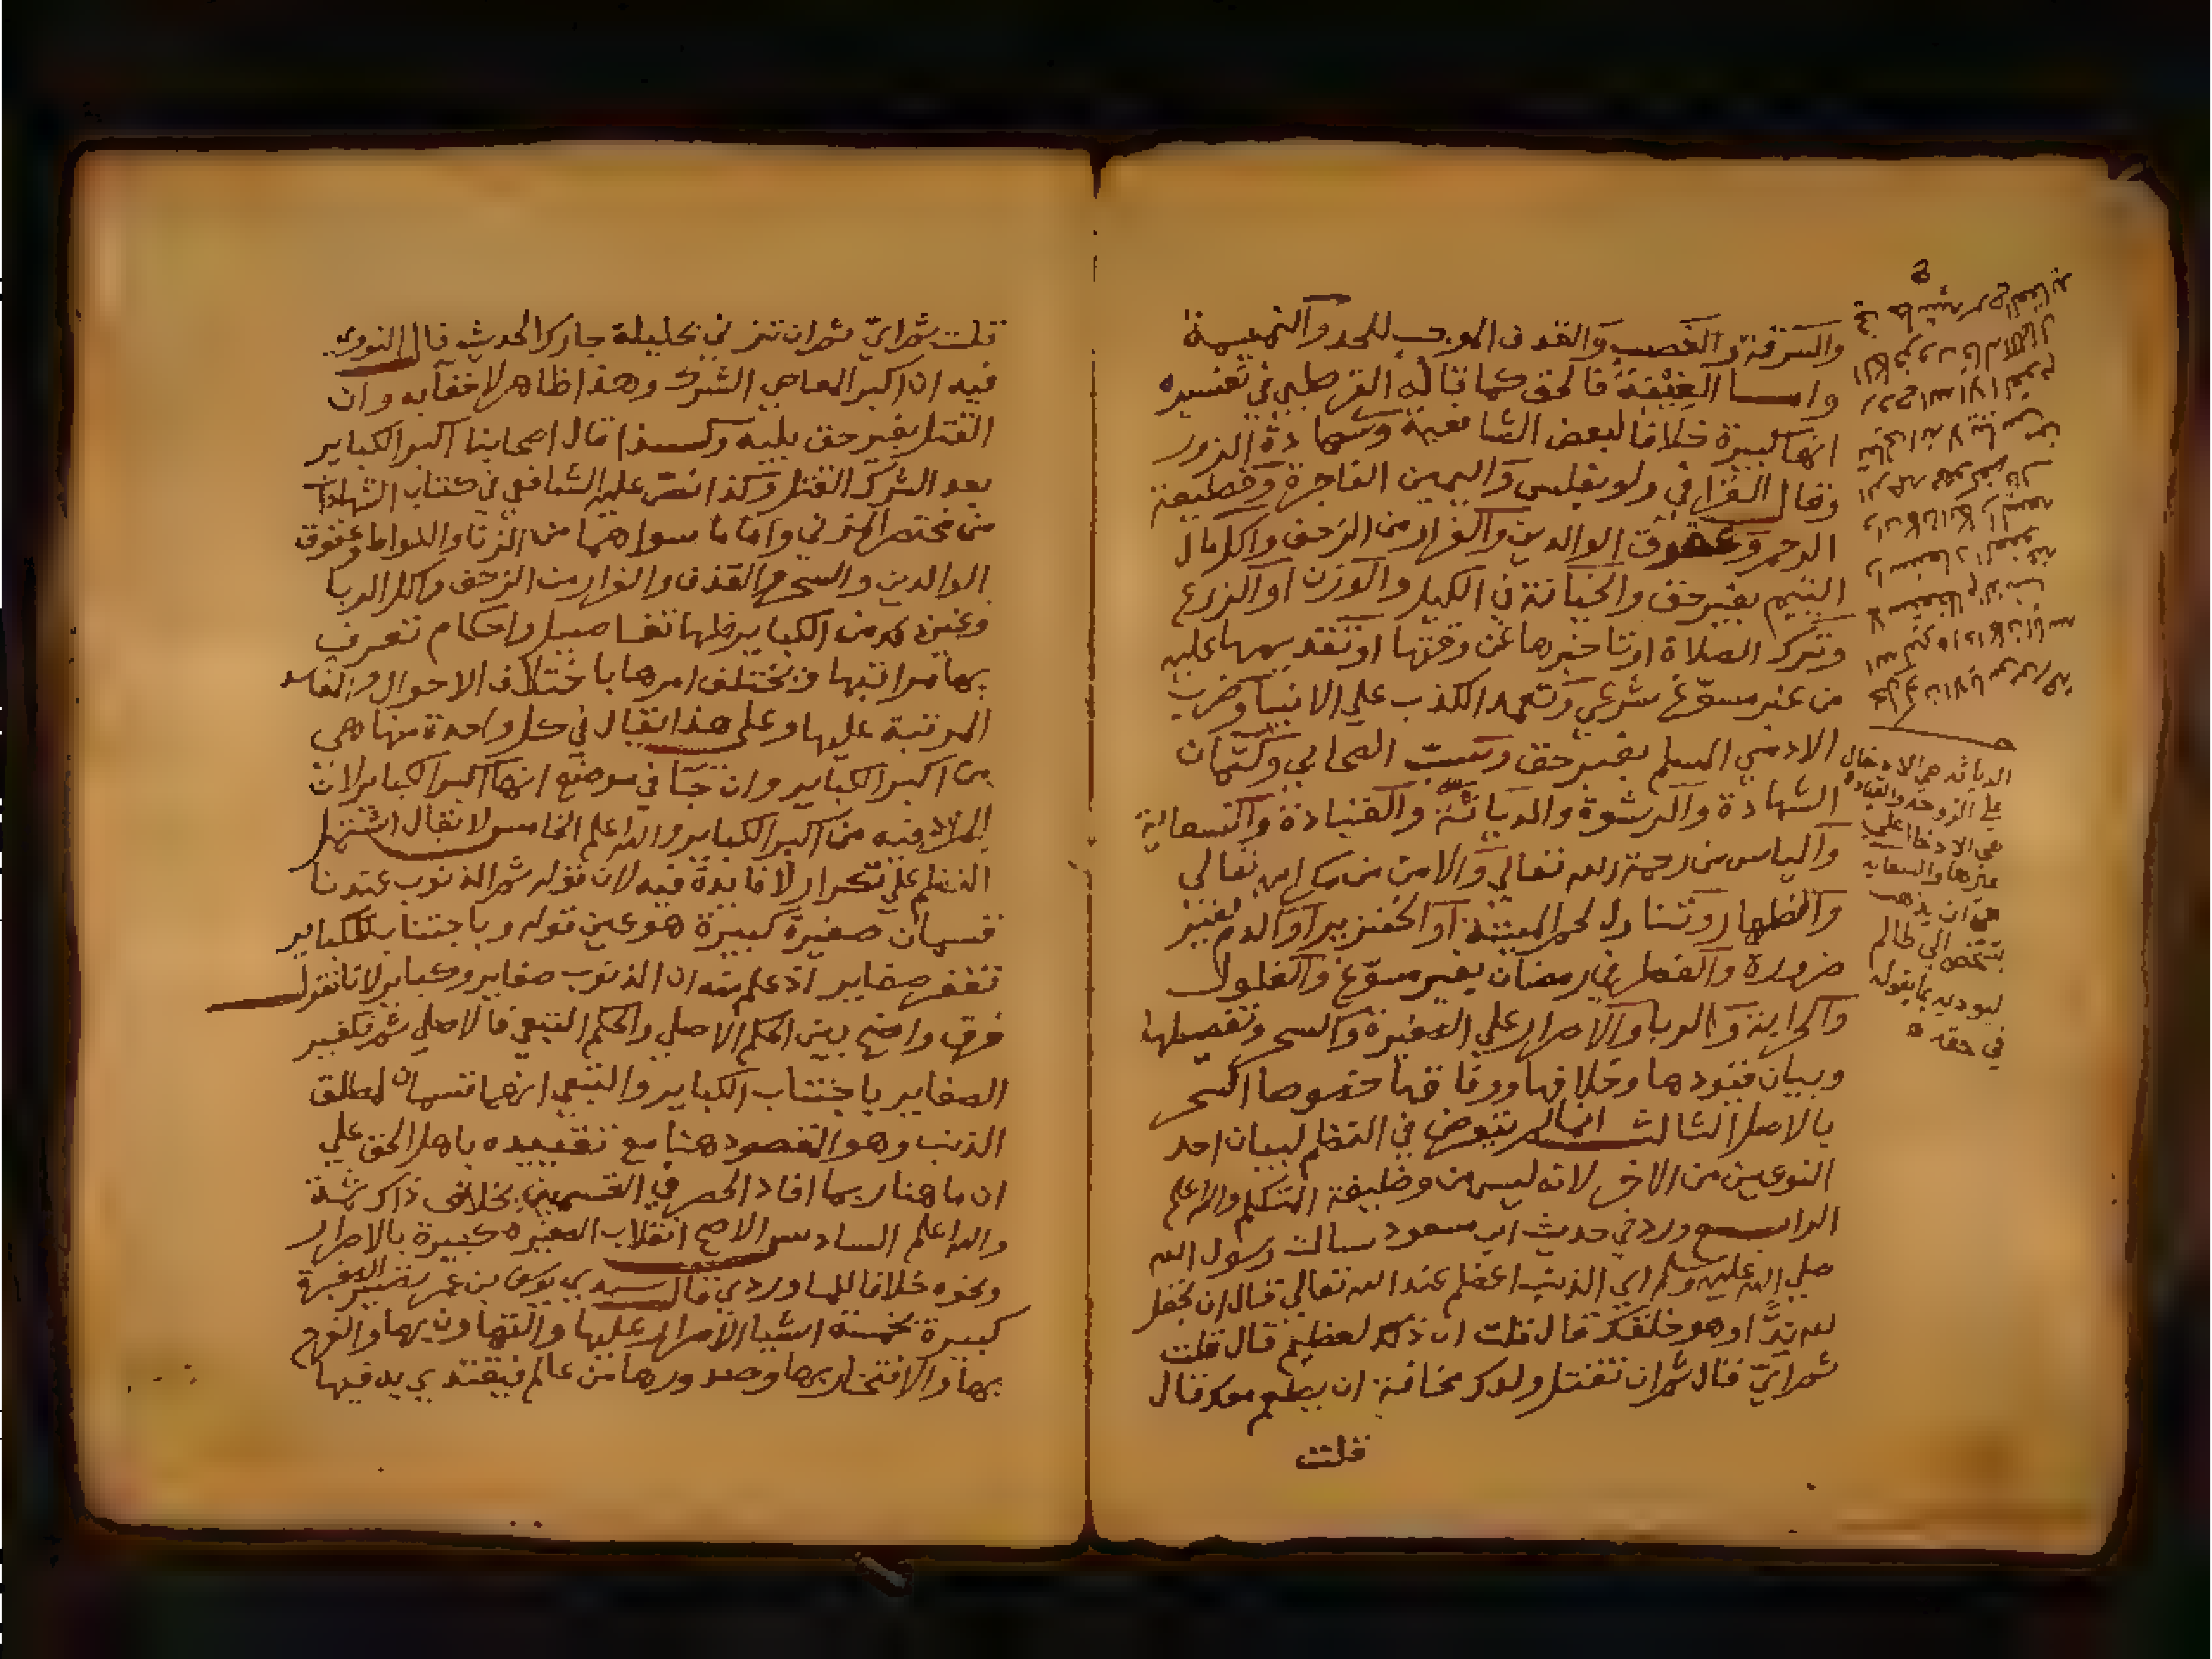 والسرقة والغصب والقذف الموجب للحد والنميمة
واما الغيبة فالحق كما قاله القرطبي في تفسيره
انها كبيرة خلافا لبعض الشافعية وشهادة الزور
وقال القرافي ولو بفلس واليمين الفاجرة وقطيعة
الرحم وعقوق الوالدين والفرار من الزحف واكل مال
اليتيم بغير حق والخيانة في الكيل والوزن او الزرع
وترك الصلاة او تاخيرها عن وقتها او تقديمها عليه
من غير مسوّغ شرعي وتعمد الكذب علي الانبيا وضرب
الادمي المسلم بغير حق وسبّ الصحابي وكتمان
الشهادة والرشوة والدياثة والقيادة والسعاية
والياس من رحمة الله تعالي والامن من مكر الله تعالي
والظهار وتناول لحم الميتة او الخنزير او الدم لغير
ضرورة والفطر في رمضان بغير مسوّغ والغلول
والحرابة والربا والاصرار علي الصغيرة والسحر وتفصيلها
وبيان قيودها وخلافها ووفاقها خصوصا السحر
بالاصل الثالث انما لم يتعرض في النظم لبيان احد
النوعين من الاخر لانه ليس من وظيفة المتكلم والله اعلم
الرابع ورد في حديث ابن مسعود سالت رسول الله
صلي الله عليه وسلم اي الذنب اعظم عند الله تعالي قال ان تجعل
لله ندّا وهو خلقك قال قلت ان ذلك لعظيم قال قلت
ثم ايّ قال ثم ان تقتل ولدك مخافة ان يطعم معك قال
قلت
الدياثه هي الادخال
علي الزوجه والقيادة
هي الادخال علي
غيرها والسعايه
هي ان يذهب
بشخص الي ظالم
ليوديه بما يقوله
في حقه
قلت ثم ايّ ثم ان تزني بحليلة جارك الحديث قال النووي
فيه ان اكبر المعاصي الشرك وهذا ظاهر لا خفا به وان
القتل بغير حق يليه وكذا قال اصحابنا اكبر الكباير
بعد الشرك القتل وكذا نصّ عليه الشافعي في كتاب الشهادات
من مختصر المزني واما ما سواهما من الزنا واللواط وعقوق
الوالدين والسحر والقذف والفرار من الزحف واكل الربا
وغير ذلك من الكباير فلها تفاصيل واحكام تعرف
بها مراتبها ويختلف امرها باختلاف الاحوال والمفاسد
المرتبة عليها وعلي هذا يقال في كل واحدة منها هي
من اكبر الكباير وان جا في موضع انها اكبر الكباير لان
المراد فيه من اكبر الكباير والله اعلم الخامس لا يقال اشتمل
النظم علي تكرار لا فايدة فيه لان قوله ثم الذنوب عندنا
قسمان صغيرة كبيرة هو عين قوله وباجتناب للكباير
تغفر صغاير اذ علم منه ان الذنوب صغاير وكباير لانا نقول
فرق واضح بين الحكم الاصلي والحكم التبعي فالاصلي ثم تكفير
الصغاير باجتناب الكباير والتبعي انهما قسمان لمطلق
الذنب وهو المقصود هنا مع تقييده باهل الحق علي
ان ما هنا ربما افاد الحصر في القسمين بخلاف ذاك ثمة
والله اعلم السادس الاصح انقلاب الصغيرة كبيرة بالاصرار
ونحوه خلافا للماوردي قال سيدي يوسف بن عمر تصير الصغيرة
كبيرة بخمسة اشيا الاصرار عليها والتهاون بها والفرح
بها والافتخار بها وصدورها من عالم فيقتدي به فيها